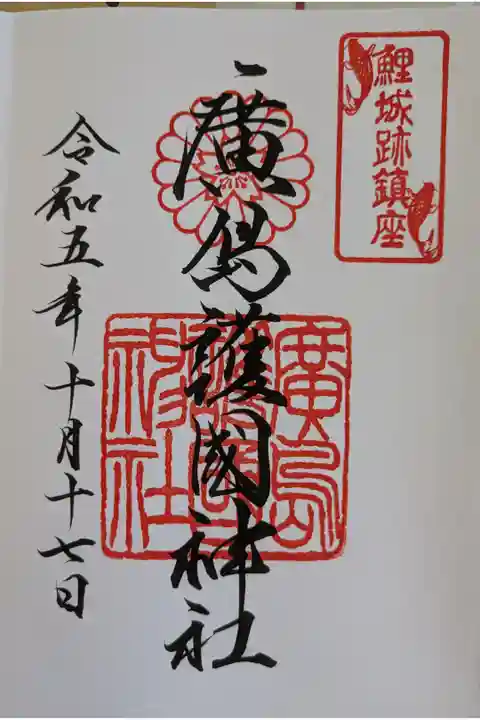 鯉城跡鎮座
廣島護國神社
廣島護國神社
令和五年十月十七日